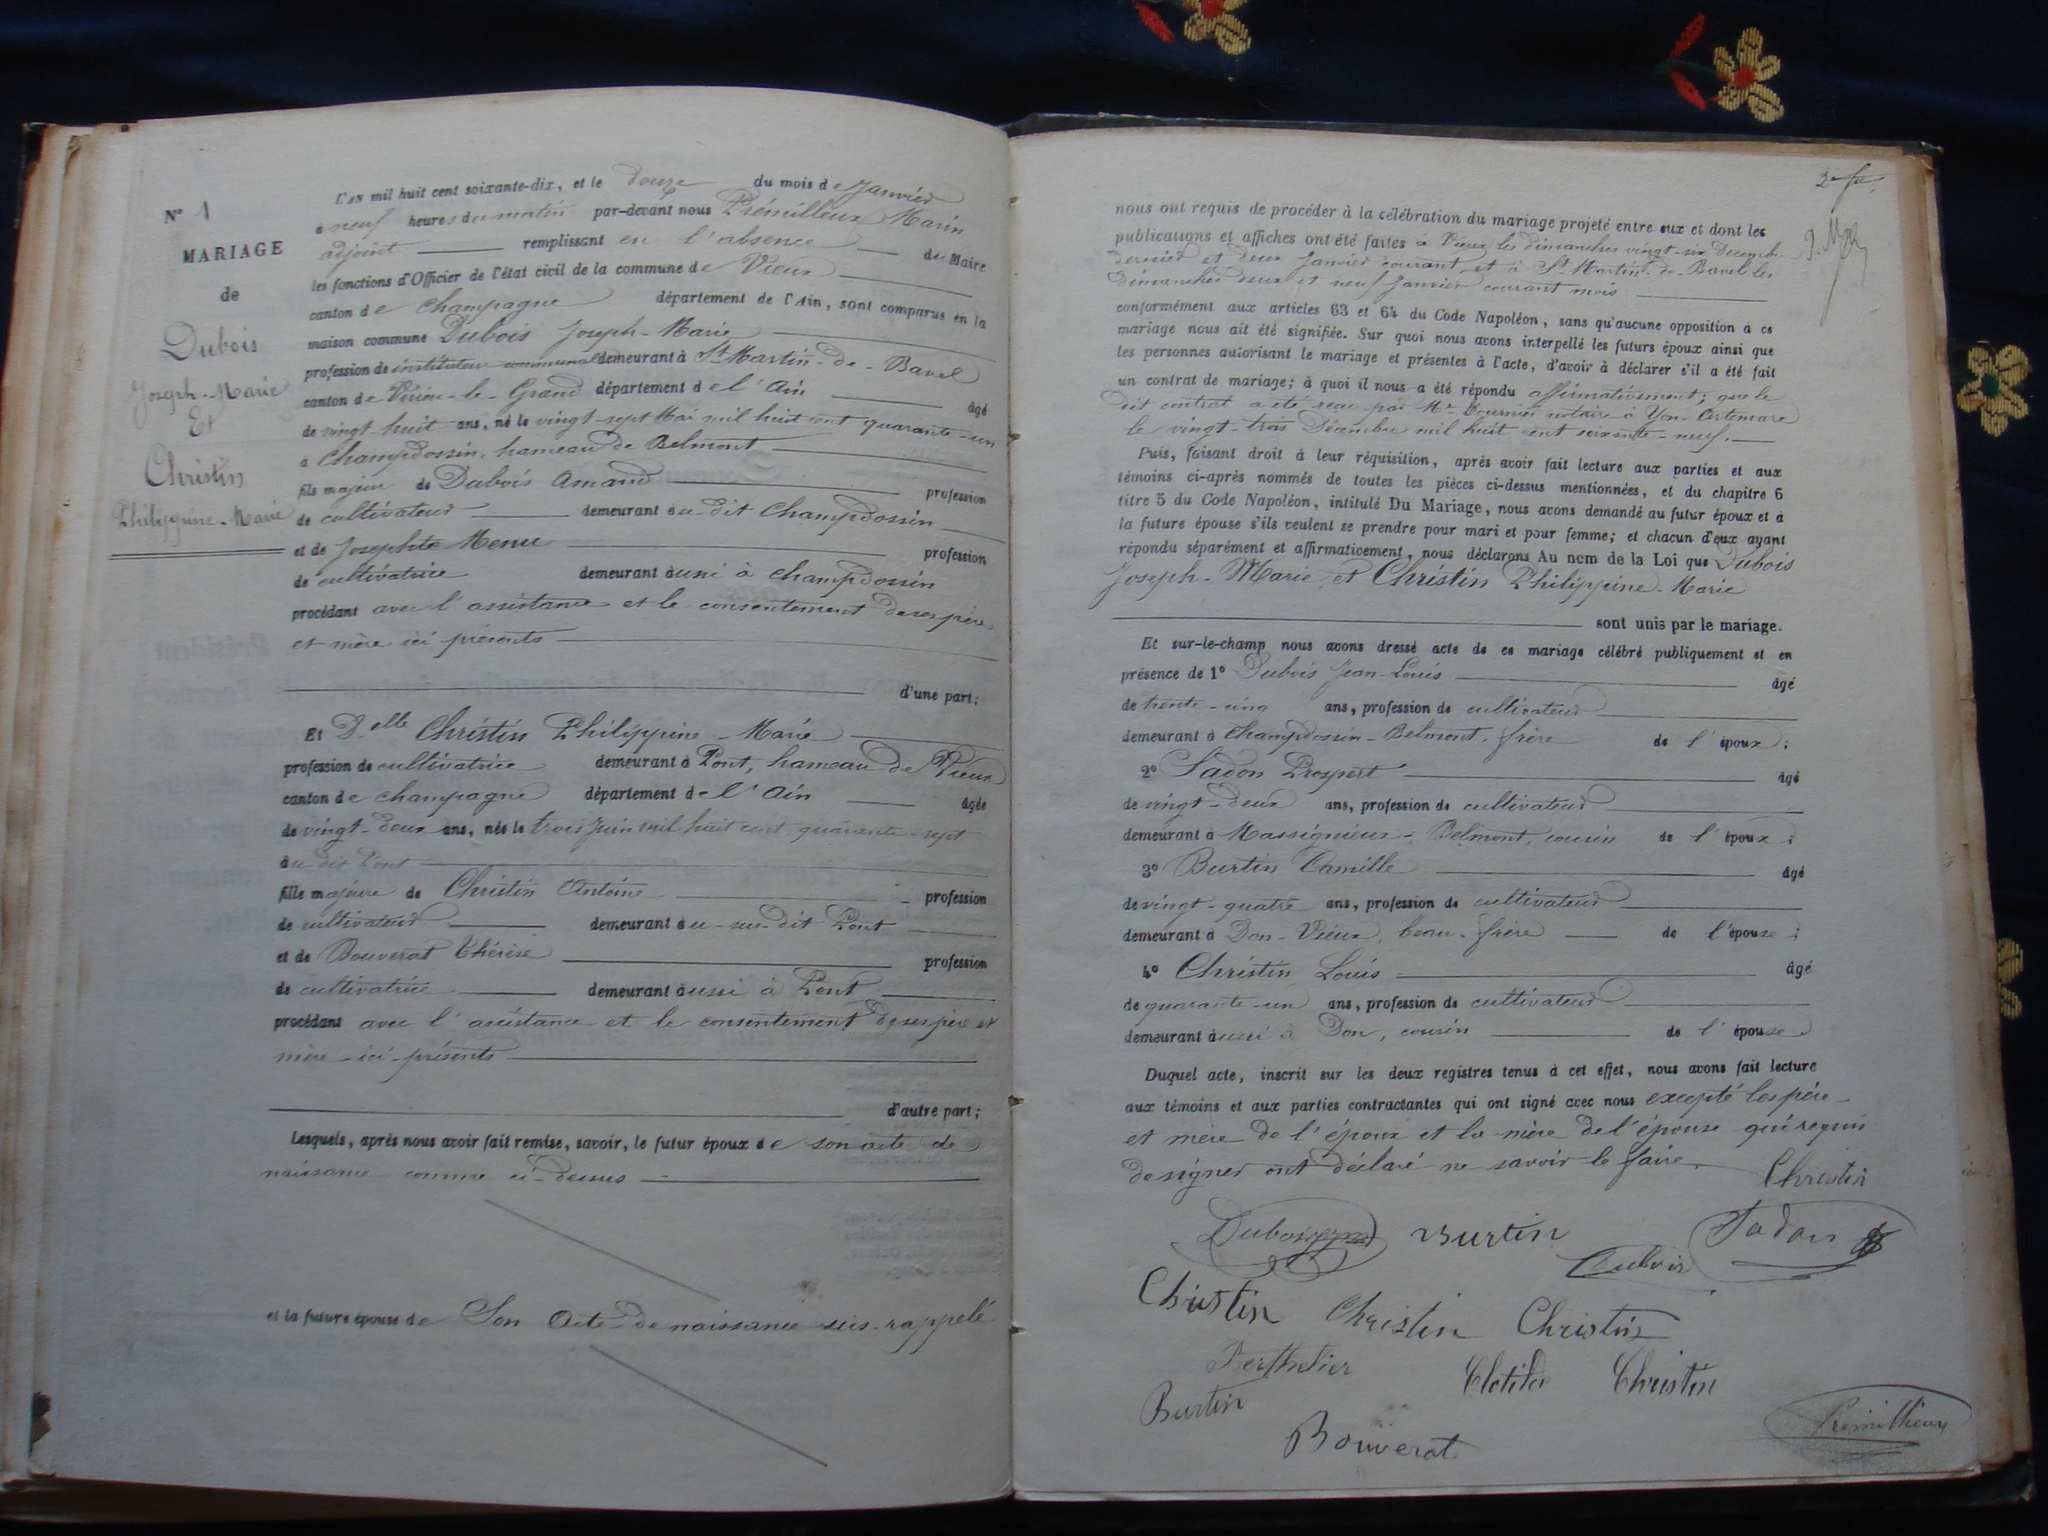 N° 1
MARIAGE
de
Dubois
Joseph-Marie
Et
Christin
Philippine-Marie
L'an mil huit cent soixante-dix, et le douze du mois de Janvier
à neuf heures du matin par-devant nous Prémilleux Marin
adjoint remplissant en l'absence de Maire
les fonctions d'Officier de l'état civil de la commune de Vieux
canton de Champagne département de l'Ain, sont comparus en la
maison commune Dubois Joseph-Marie
profession de instituteur communal demeurant à St Martin-de-Bavel
canton de Virieu-le-Grand département de l'Ain âgé
de vingt-huit ans, né le vingt-sept Mai mil huit cent quarante-un
à Champdossin, hameau de Belmont
fils majeur de Dubois Amand profession
de cultivateur demeurant au-dit Champdossin
et de Josephte Menu profession
de cultivatrice demeurant aussi à Champdossin
procédant avec l'assistance et le consentement de ses père
et mère ici présents
d'une part;
Et Delle Christin Philippine-Marie
profession de cultivatrice demeurant à Pont, hameau de Vieux
canton de Champagne département de l'Ain âgée
de vingt-deux ans, née le trois Juin mil huit cent quarante-sept
au dit Pont
fille majeure de Christin Antoine profession
de cultivateur demeurant au-sus-dit Pont
et de Bouverat Thérèse profession
de cultivatrice demeurant aussi à Pont
procédant avec l'assistance et le consentement de ses père et
mère-ici-présents
d'autre part;
Lesquels, après nous avoir fait remise, savoir, le futur époux de son acte de
naissance comme ci-dessus
et la future épouse de Son Acte de naissance sus-rappelé
nous ont requis de procéder à la célébration du mariage projeté entre eux et dont les
publications et affiches ont été faites à Vieux les dimanches vingt-six Décembre
dernier et deux Janvier courant et à St Martin-de-Bavel les
Dimanches deux et neuf Janvier courant mois
conformément aux articles 63 et 64 du Code Napoléon, sans qu'aucune opposition à ce
mariage nous ait été signifiée. Sur quoi nous avons interpellé les futurs époux ainsi que
les personnes autorisant le mariage et présentes à l'acte, d'avoir à déclarer s'il a été fait
un contrat de mariage; à quoi il nous a été répondu affirmativement; que le
dit contrat a été reçu par Me Fournier notaire à Yon-Artemare
le vingt-trois Décembre mil huit cent soixante-neuf.
Puis, faisant droit à leur réquisition, après avoir fait lecture aux parties et aux
témoins ci-après nommés de toutes les pièces ci-dessus mentionnées, et du chapitre 6
titre 5 du Code Napoléon, intitulé Du Mariage, nous avons demandé au futur époux et à
la future épouse s'ils veulent se prendre pour mari et pour femme; et chacun d'eux ayant
répondu séparément et affirmativement, nous déclarons Au nom de la Loi que Dubois
Joseph-Marie et Christin Philippine-Marie
sont unis par le mariage.
Et sur-le-champ nous avons dressé acte de ce mariage célébré publiquement et en
présence de 1° Dubois Jean-Louis âgé
de trente-cinq ans, profession de cultivateur
demeurant à Champdossin-Belmont, frère de l'époux;
2° Sadon Prospert âgé
de vingt-deux ans, profession de cultivateur
demeurant à Massignieux-Belmont, cousin de l'époux;
3° Burtin Camille âgé
de vingt-quatre ans, profession de cultivateur
demeurant à Don-Vieux, beau-frère de l'épouse;
4° Christin Louis âgé
de quarante-un ans, profession de cultivateur
demeurant aussi à Don, cousin de l'épouse
Duquel acte, inscrit sur les deux registres tenus à cet effet, nous avons fait lecture
aux témoins et aux parties contractantes qui ont signé avec nous excepté les père-
et mère de l'époux et la mère de l'épouse qui requis
de signer ont déclaré ne savoir le faire.
Christin
Dubois Burtin Sadon
Dubois
Christin Christin Christin
Berthelier Clotilde Christin
Burtin
Bouverat
Prémillieux